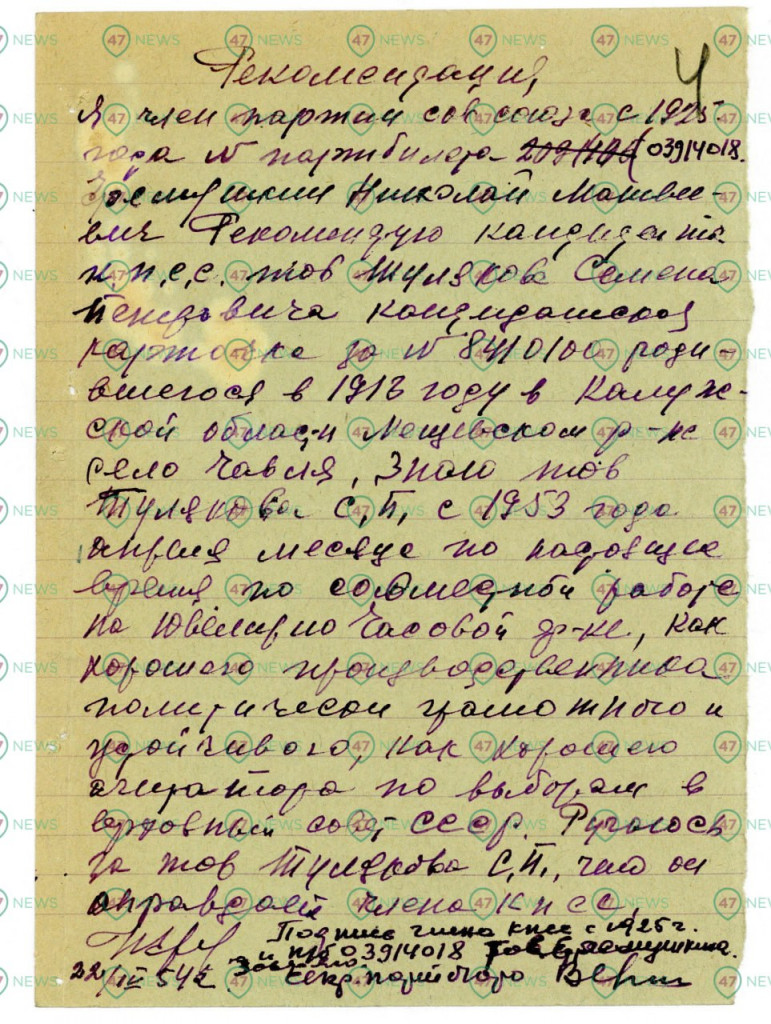 4
Рекомендация
Я член партии сов союза с 1925
года № партбилета 03914018.
Николай Матве-
евич Рекомендую кандидата
к.п.с.с. тов Тулякова Семена
Петровича кандидатская
карточка за № 8410100 роди-
вшегося в 1913 году в Калуж-
ской области Мещевском р-не
село Чавля, Знаю тов
Тулякова С.П. с 1953 года
апреля месяца по настояще
время по совместной работе
на Ювелирно Часовой ф-ке, как
хорошего производственника
политически грамотного и
устойчивого, как хорошего
агитатора по выборам в
верховный совет СССР. Ручаюсь
за тов Тулякова С.П., что он
оправдает члена КПСС
Подпись члена кпсс с 1925 г.
п/б 03914018 тов
заверяю.
22/IV 54 г. Секр. партбюро